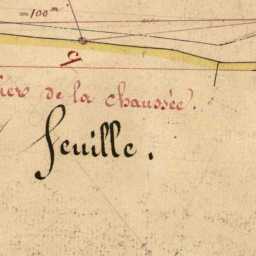 =100ᵐ
de la chaussée.
feuille.